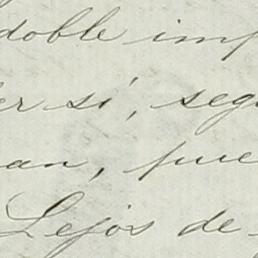 doble imp
er sí, segu
an, pue
Lejos de